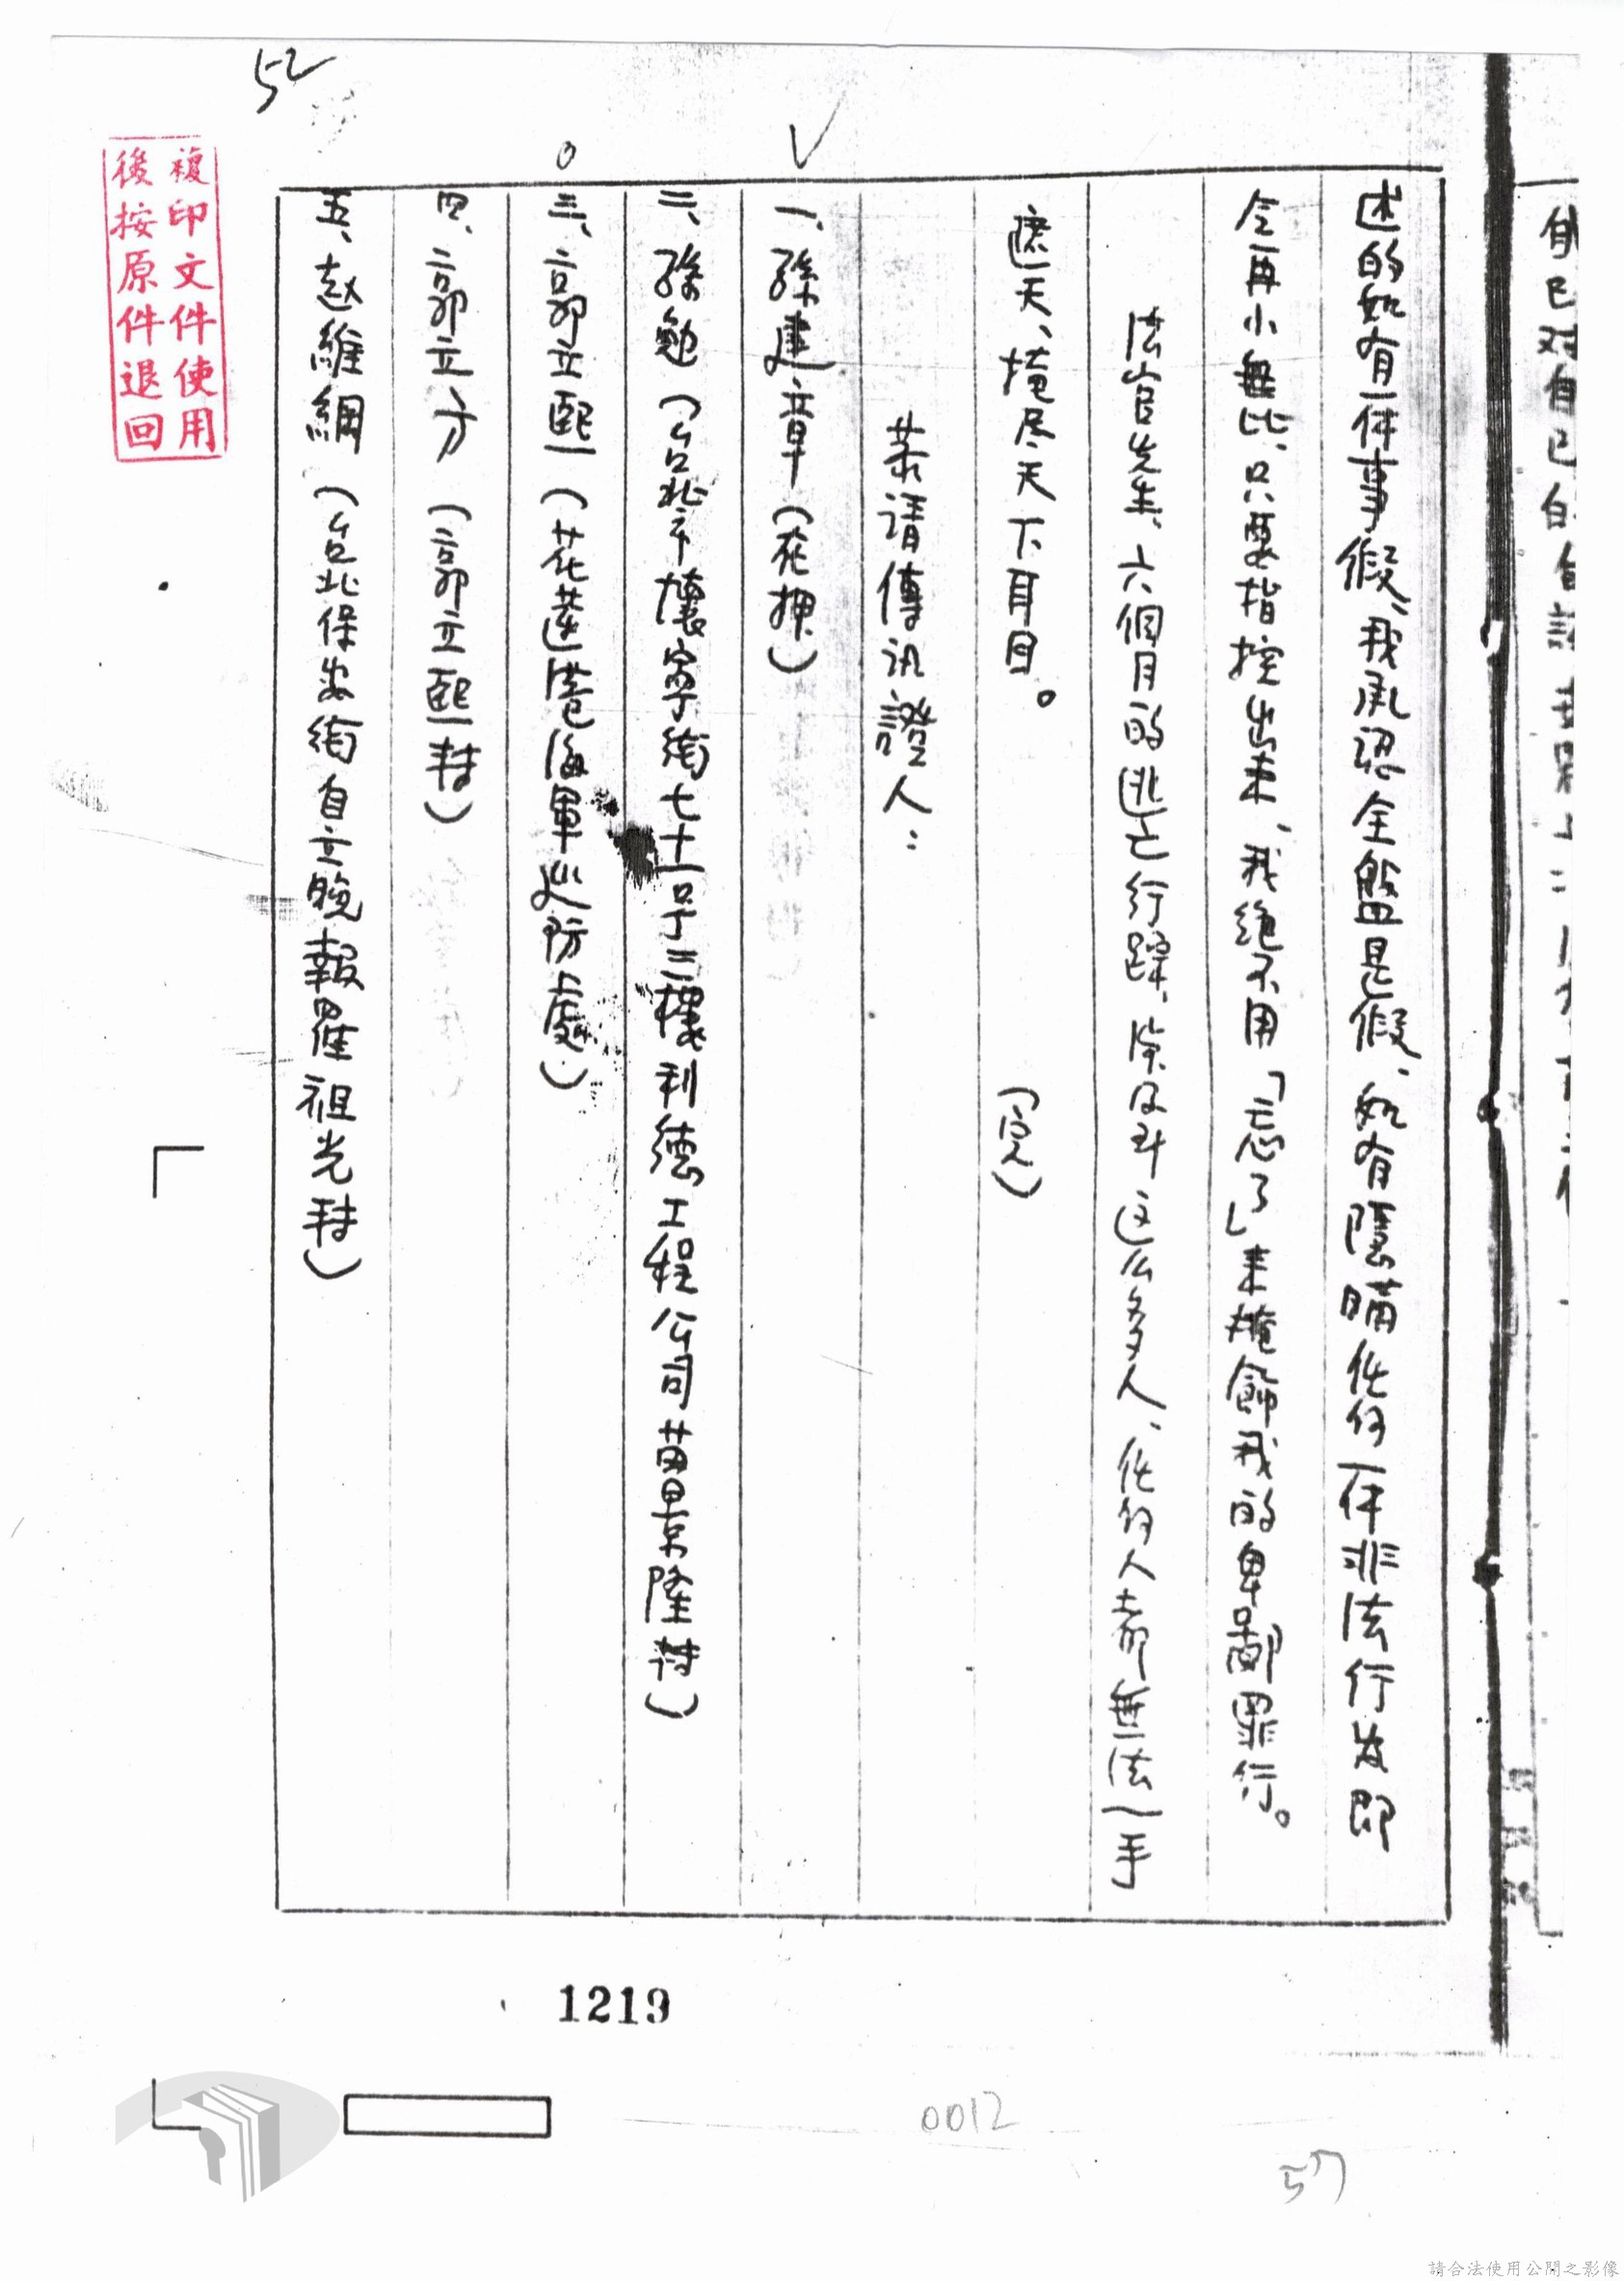 述的如有一件事假、我承認全盤是假、如有隱瞞任何一件非法行為即
令再小無比、只要指控出來、我絕不用「忘了」來掩飾我的卑鄙罪行。
法官先生、六個月的逃亡行踪、涉及到这么多人、任何人都無法一手
遮天、掩尽天下耳目。
(完)
恭請傳訊證人:
一、孫建章(在押)
二、孫勉(台北市懷寧街七十一号三樓利德工程公司苗景隆轉)
三、郭立熙(花蓮港海軍巡防處)
四、郭立方(郭立熙轉)
五、赵維綱(台北保安街自立晚報羅祖光轉)
52
複印文件使用
後按原件退回
1219
0012
57
請合法使用公開之影像